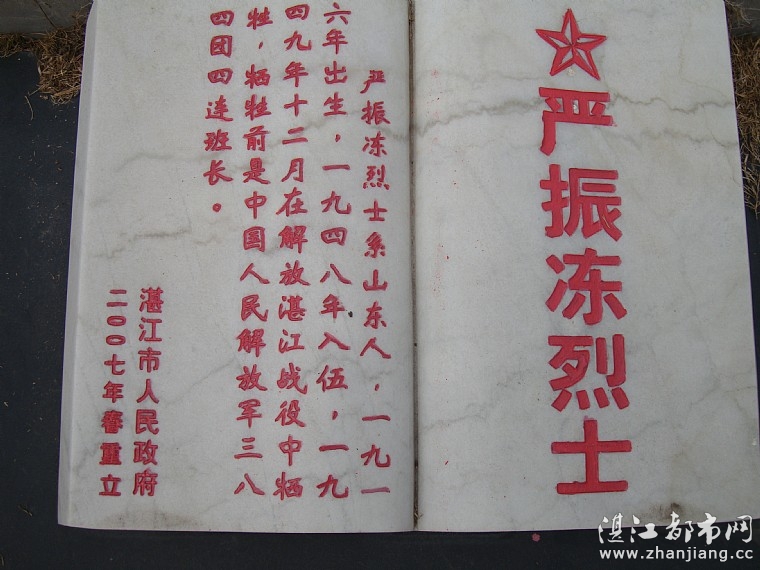 严振冻烈士
严振冻烈士系山东人，一九一
六年出生，一九四八年入伍，一九
四九年十二月在解放湛江战役中牺
牲，牺牲前是中国人民解放军三八
四团四连班长。
湛江市人民政府
二00七年春重立
湛江都市网
www.zhanjiang.cc